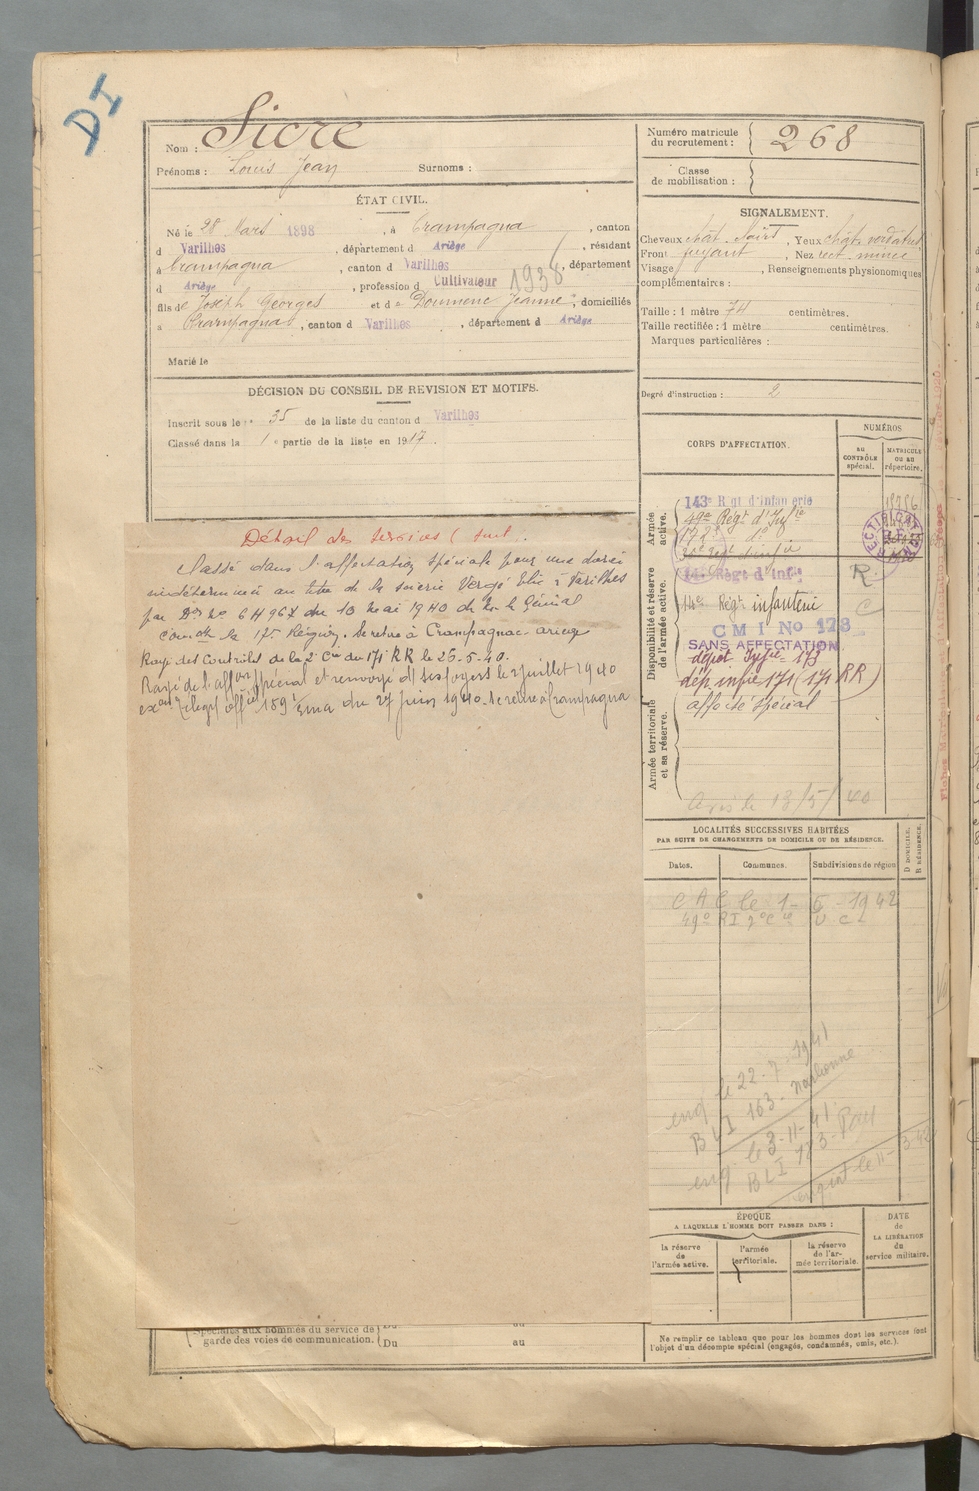 DI
Nom : Sicre
Prénoms : Louis Jean Surnoms :
ÉTAT CIVIL.
Né le 28 Mars 1898, à Crampagna, canton
d Varilhes, département d Ariège, résident
à Crampagna, canton d Varilhes, département
d Ariège, profession d Cultivateur 1938
fils de Joseph Georges et de Doumenc Jeanne, domiciliés
à Crampagna, canton d Varilhes, département d Ariège
Marié le
DÉCISION DU CONSEIL DE REVISION ET MOTIFS.
Inscrit sous le n° 35 de la liste du canton d Varilhes
Classé dans la 1e partie de la liste en 1917.
Détail des services (suite.
Passé dans l'affectation spéciale pour une durée
indéterminée au titre de la scierie Vergé Elie à Varilhes
par Don no 6H967 du 10 Mai 1940 de Mr le Général
Comdt la 17e Région. Se retire à Crampagna ariège
Rayé des Contrôles de la 2e Cie du 171 RR le 25-5-40.
Rayé de l'affon spécial et renvoyé ds ses foyers le 2 juillet 1940
exon Télégr offiel 1591 ema du 27 juin 1940. Se retire à Crampagna
Spéciales aux hommes du service de
garde des voies de communication. Du au
Du au
Numéro matricule
du recrutement : 268
Classe
de mobilisation :
SIGNALEMENT.
Cheveux chât. noirs, Yeux chât. verdâtres
Front fuyant, Nez rect. mince
Visage , Renseignements physionomiques
complémentaires :
Taille : 1 mètre 74 centimètres.
Taille rectifiée : 1 mètre centimètres.
Marques particulières :
Degré d'instruction : 2
CORPS D'AFFECTATION.
NUMÉROS
AU CONTRÔLE spécial.
MATRICULE OU AU répertoire.
Armée active.
143e Rgt d'Infanterie
49e Régt d'Infie
172e do
RECTIFICATION
Disponibilité et réserve de l'armée active.
14e Régt d'Infie
R.
14e Régt infanterie
C
C M I No 173
SANS AFFECTATION
dépôt Infie 173
dép. infie 171 (171 RR)
Armée territoriale et sa réserve.
affecté spécial
Avis le 13/5/40
LOCALITÉS SUCCESSIVES HABITÉES
PAR SUITE DE CHANGEMENTS DE DOMICILE OU DE RÉSIDENCE.
Dates. Communes. Subdivisions de région
D DOMICILE.
R RÉSIDENCE.
C A C le 1- 5 -1942
49e RI 2e Cie
eng le 22-7-1941
B L I 163- Narbonne
eng le 3-11-41
BLI 173- Pau
ÉPOQUE
A LAQUELLE L'HOMME DOIT PASSER DANS :
la réserve de l'armée active.
l'armée territoriale.
la réserve de l'armée territoriale.
DATE de LA LIBÉRATION du service militaire.
Ne remplir ce tableau que pour les hommes dont les services font
l'objet d'un décompte spécial (engagés, condamnés, omis, etc.).